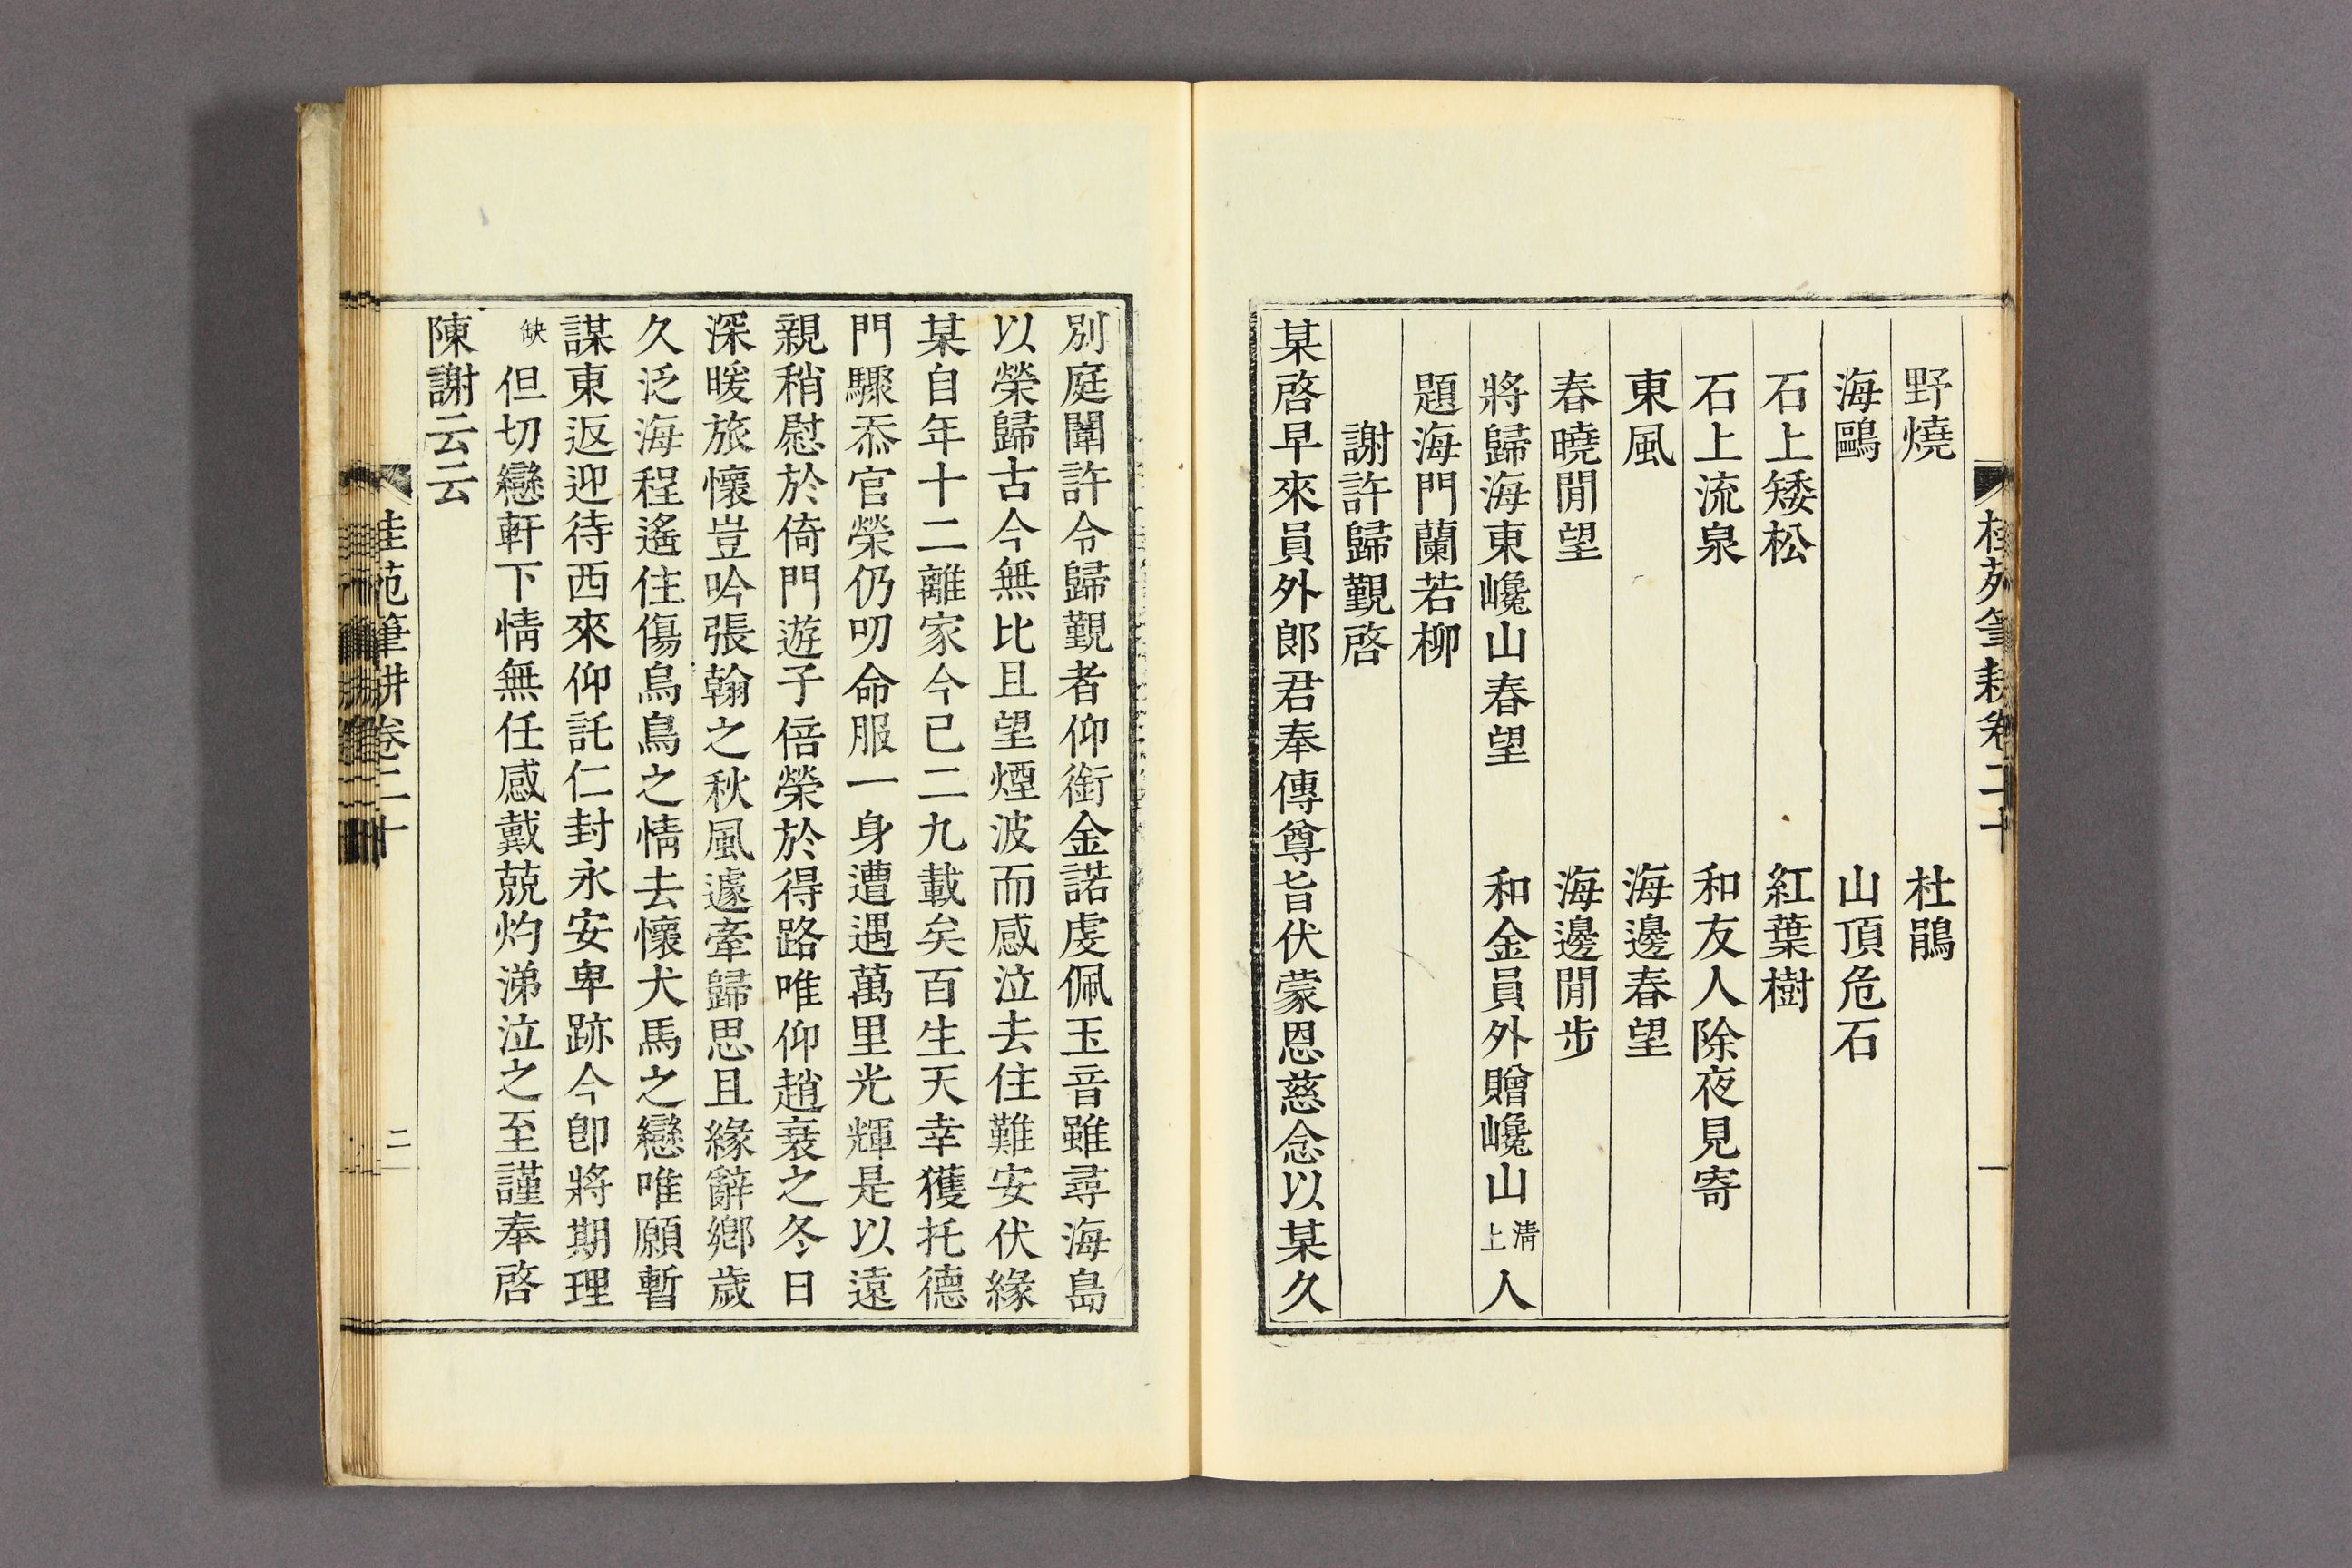 桂苑筆耕卷二十
一
野燒　杜鵑
海鷗　山頂危石
石上矮松　紅葉樹
石上流泉　和友人除夜見寄
東風　海邊春望
春曉閒望　海邊閒步
將歸海東巉山春望　和金員外贈巉山淸上人
題海門蘭若柳
謝許歸覲啓
某啓早來員外郞君奉傳尊旨伏蒙恩慈念以某久
別庭闈許令歸覲者仰銜金諾虔佩玉音雖尋海島
以榮歸古今無比且望煙波而感泣去住難安伏緣
某自年十二離家今已二九載矣百生天幸獲托德
門驟忝官榮仍叨命服一身遭遇萬里光輝是以遠
親稍慰於倚門遊子倍榮於得路唯仰趙衰之冬日
深暖旅懷豈吟張翰之秋風遽牽歸思且緣辭鄕歲
久泛海程遙住傷烏鳥之情去懷犬馬之戀唯願暫
謀東返迎待西來仰託仁封永安卑跡今卽將期理
缺但切戀軒下情無任感戴兢灼涕泣之至謹奉啓
陳謝云云
桂苑筆耕卷二十
二